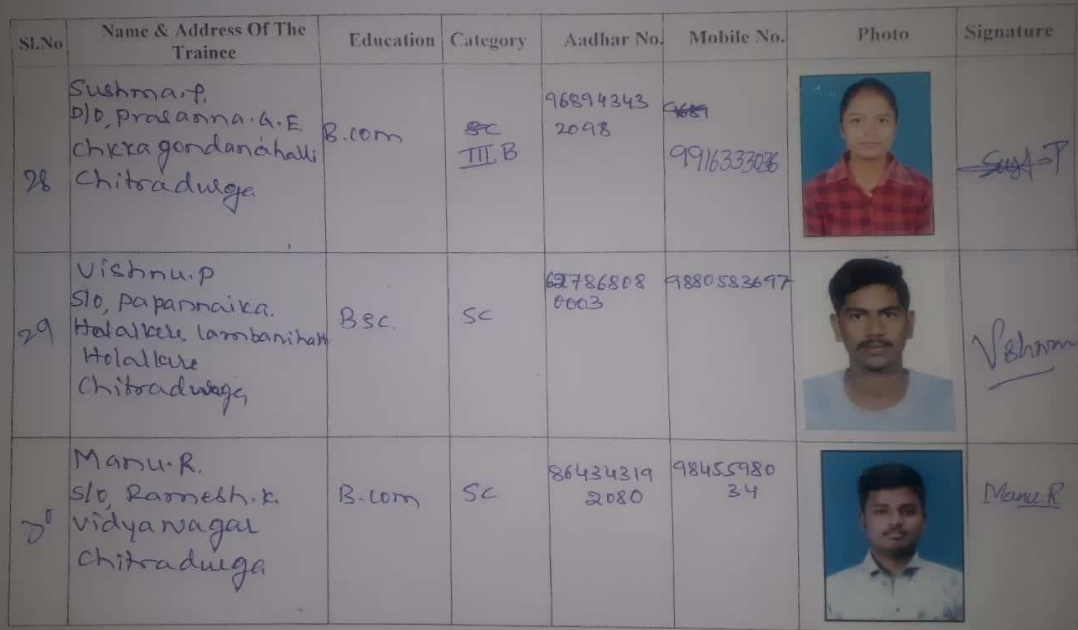 Sl.No
Name & Address Of The
Trainee
Education
Category
Aadhar No.
Mobile No.
Photo
Signature
28
Sushma.P.
D/O, Prasanna.G.E.
Chkkagondanahalli
Chitradurga
B.com
SC
III B
96894343
2098
9689
9916333036
29
Vishnu.P
S/O, Papannaika.
Holalkere, Lambanihatti
Holalkere
Chitradurga
Bsc.
SC
62786808
0003
9880583697
Vishnu
30
Manu.R.
S/O, Ramesh.K.
Vidyanagar
Chitradurga
B.com
SC
86434319
2080
98455980
34
Manu.R